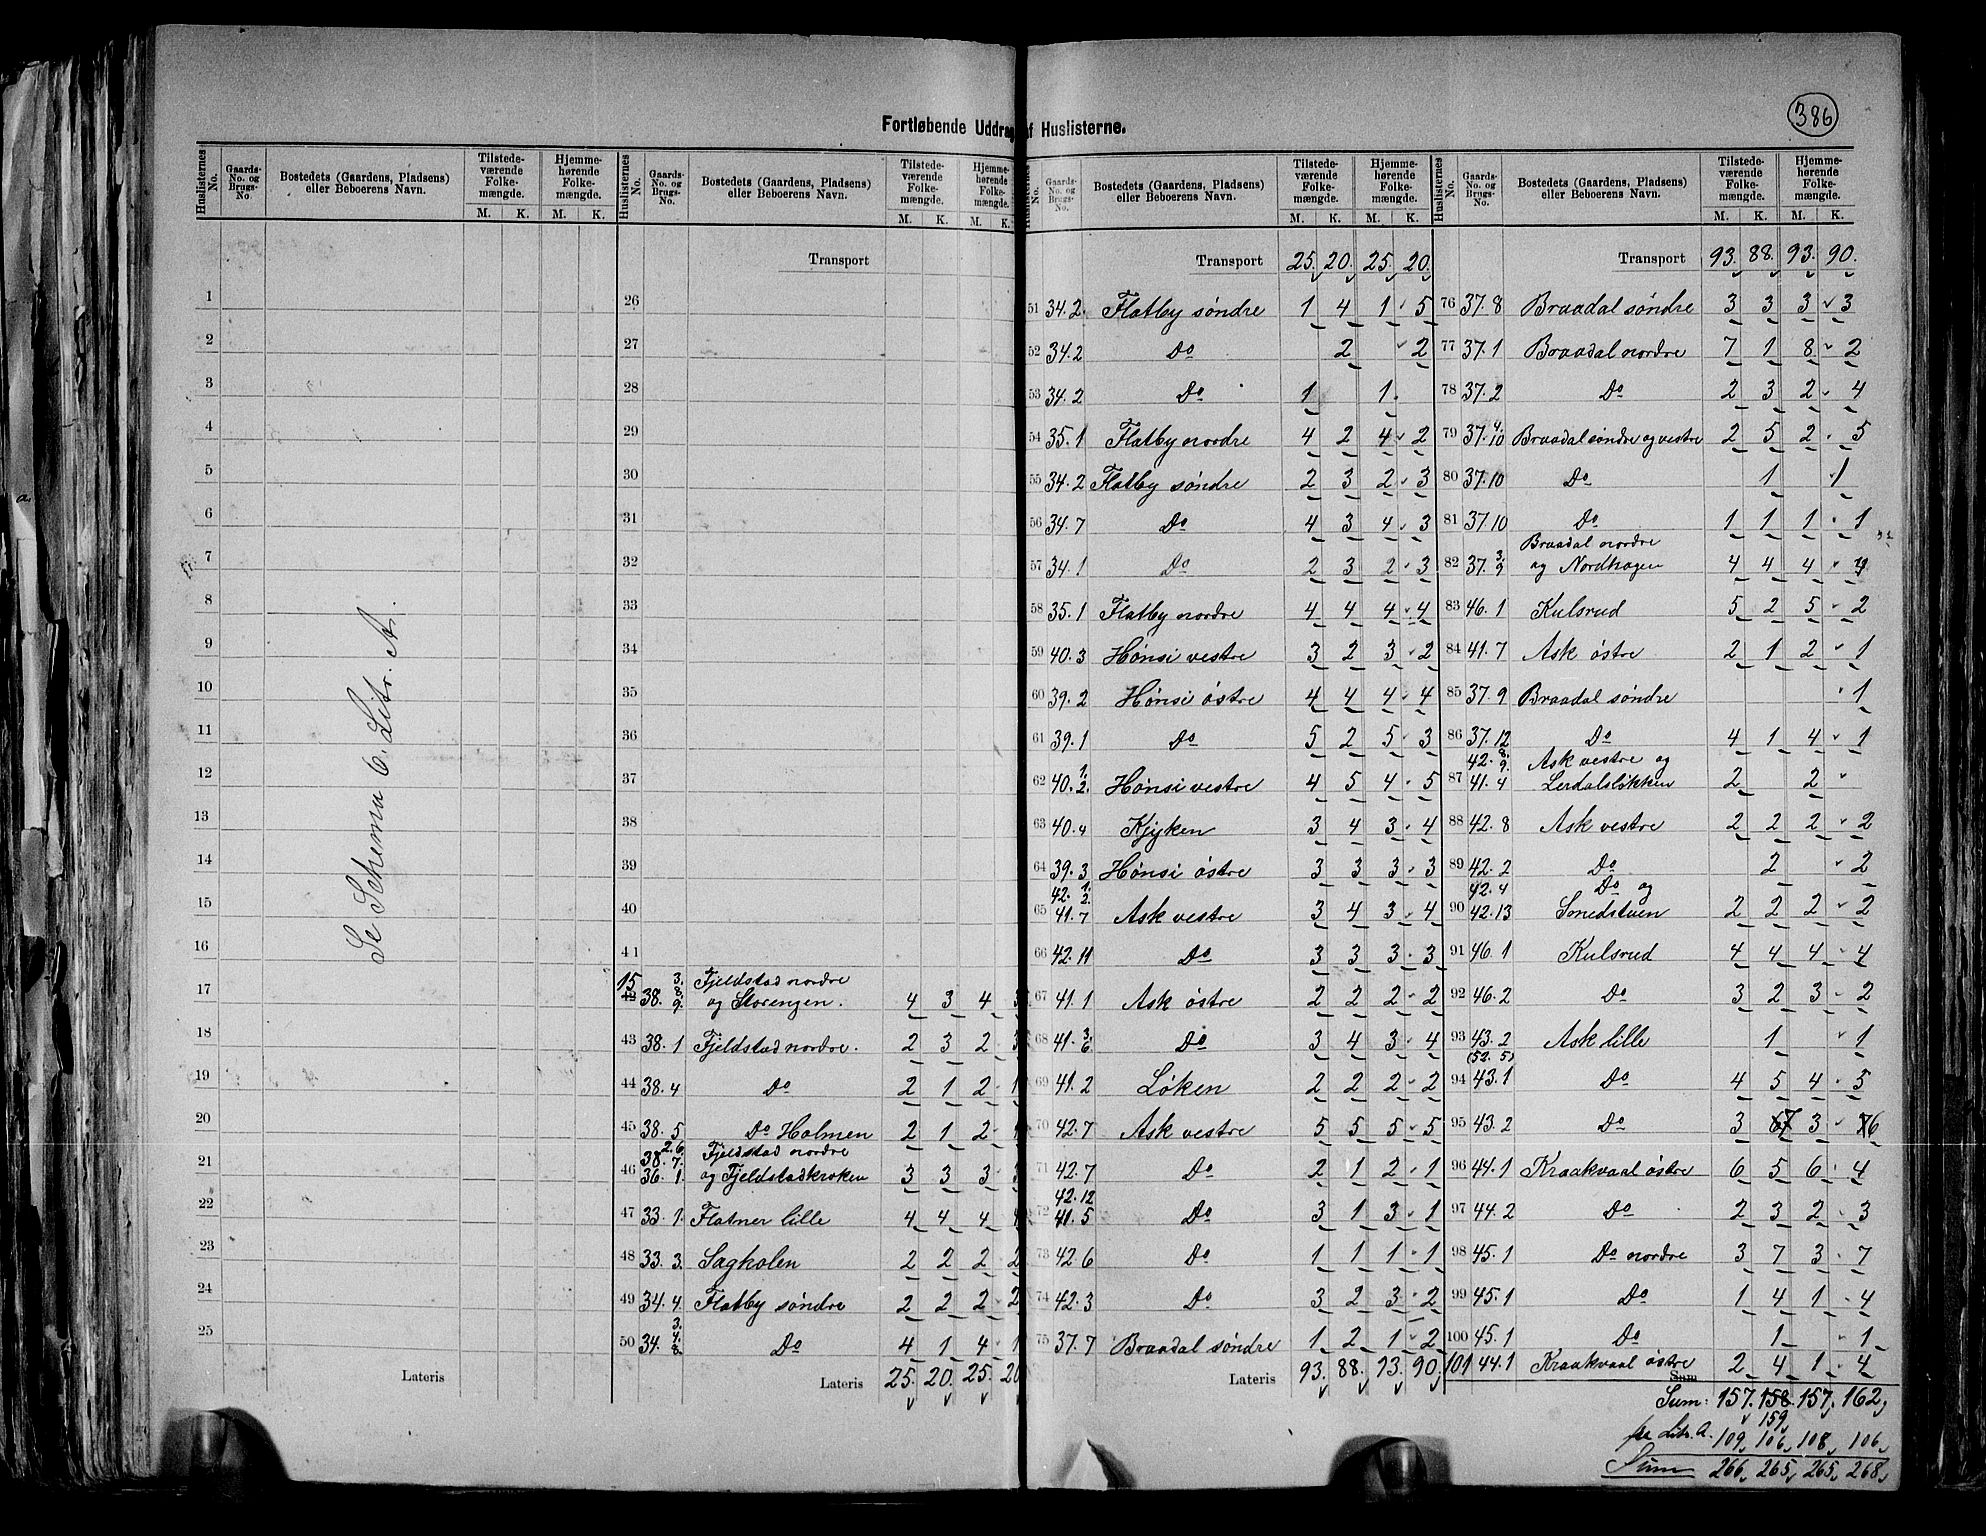 386
Fortløbende Uddrag af Huslisterne.
Huslisternes No. Gaards-No. og Brugs-No. Bostedets (Gaardens, Pladsens) eller Beboerens Navn. Tilstede-værende Folke-mængde. Hjemme-hørende Folke-mængde.
M. K. M. K.
Se Schema 6. Litr. A.
1
2
3
4
5
6
7
8
9
10
11
12
13
14
15
16
17
18
19
20
21
22
23
24
25
Lateris
Huslisternes No. Gaards-No. og Brugs-No. Bostedets (Gaardens, Pladsens) eller Beboerens Navn. Tilstede-værende Folke-mængde. Hjemme-hørende Folke-mængde.
M. K. M. K.
Transport
26
27
28
29
30
31
32
33
34
35
36
37
38
39
40
41
15 42 38. 3. 8. 9. Fjeldstad nordre og Storengen. 4 3 4 3
43 38. 1 Fjeldstad nordre. 2 3 2 3
44 38. 4 Do 2 1 2 1
45 38. 5 Do Holmen 2 1 2 1
46 38. 2. 6. 7. 36. 1. Fjeldstad nordre og Fjeldstadkroken 3 3 3 3
47 33. 1. Flatner lille 4 4 4 4
48 33. 3. Sagkolen 2 2 2 2
49 34. 4. Flatby søndre 2 2 2 2
50 34. 3. 4. 8. Do 4 1 4 1
Lateris 25. 20. 25. 20
No. Gaards-No. og Brugs-No. Bostedets (Gaardens, Pladsens) eller Beboerens Navn. Tilstede-værende Folke-mængde. Hjemme-hørende Folke-mængde.
M. K. M. K.
Transport 25. 20. 25. 20.
51 34. 2. Flatby søndre 1 4 1 5
52 34. 2 Do 2 2
53 34. 2 Do 1 1
54 35. 1 Flatby nordre 4 2 4 2
55 34. 2 Flatby søndre 2 3 2 3
56 34. 7 Do 4 3 4 3
57 34. 1 Do 2 3 2 3
58 35. 1 Flatby nordre 4 4 4 4
59 40. 3 Hønsi vestre 3 2 3 2
60 39. 2 Hønsi østre 4 4 4 4
61 39. 1 Do 5 2 5 3
62 40. 1. 2. Hønsi vestre 4 5 4 5
63 40. 4 Kjyken 3 4 3 4
64 39. 3 Hønsi østre 3 3 3 3
65 42. 1. 2. 41. 7 Ask vestre 3 4 3 4
66 42. 11 Do 3 3 3 3
67 41. 1 Ask østre 2 2 2 2
68 41. 3. 6. Do 3 4 3 4
69 41. 2 Løken 2 2 2 2
70 42. 7 Ask vestre 5 5 5 5
71 42. 7 Do 2 1 2 1
72 42. 12 41. 5 Do 3 1 3 1
73 42. 6 Do 1 1 1 1
74 42. 3 Do 3 2 3 2
75 37. 7 Braadal søndre 1 2 1 2
Lateris 93. 88. 93. 90.
Huslisternes No. Gaards-No. og Brugs-No. Bostedets (Gaardens, Pladsens) eller Beboerens Navn. Tilstede-værende Folke-mængde. Hjemme-hørende Folke-mængde.
M. K. M. K.
Transport 93. 88. 93. 90.
76 37. 8 Braadal søndre 3 3 3 3
77 37. 1 Braadal nordre 7 1 8 2
78 37. 2 Do 2 3 2 4
79 37. 4. 10 Braadal søndre og vestre 2 5 2 5
80 37. 10 Do 1 1
81 37. 10 Do 1 1 1 1
82 37. 3. 9 Braadal nordre og Nordhagen 4 4 4
83 46. 1 Kulsrud 5 2 5 2
84 41. 7 Ask østre 2 1 2 1
85 37. 9 Braadal søndre 1
86 37. 12 Do 4 1 4 1
87 42. 8. 9. 41. 4 Ask vestre og Lerdalsløkken 2 2
88 42. 8 Ask vestre 2 2 2 2
89 42. 2 Do 2 2
90 42. 4 42. 13 Do og Smedstuen 2 2 2 2
91 46. 1 Kulsrud 4 4 4 4
92 46. 2 Do 3 2 3 2
93 43. 2 (52. 5) Ask lille 1 1
94 43. 1 Do 4 5 4 5
95 43. 2 Do 3 7 3 6
96 44. 1 Kraakvaal østre 6 5 6 4
97 44. 2 Do 2 3 2 3
98 45. 1 Do nordre 3 7 3 7
99 45. 1 Do 1 4 1 4
100 45. 1 Do 1 1
101 44. 1 Kraakvaal østre 2 4 1 4
Sum
Sum: 157. 158. 157. 162.
159
fra Litr. A. 109 106 108 106
Sum 266 265 265 268